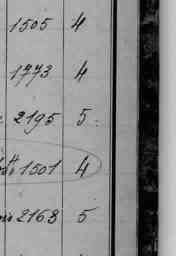 1505 4
1773 4
2195 5
1501 4
2168 5